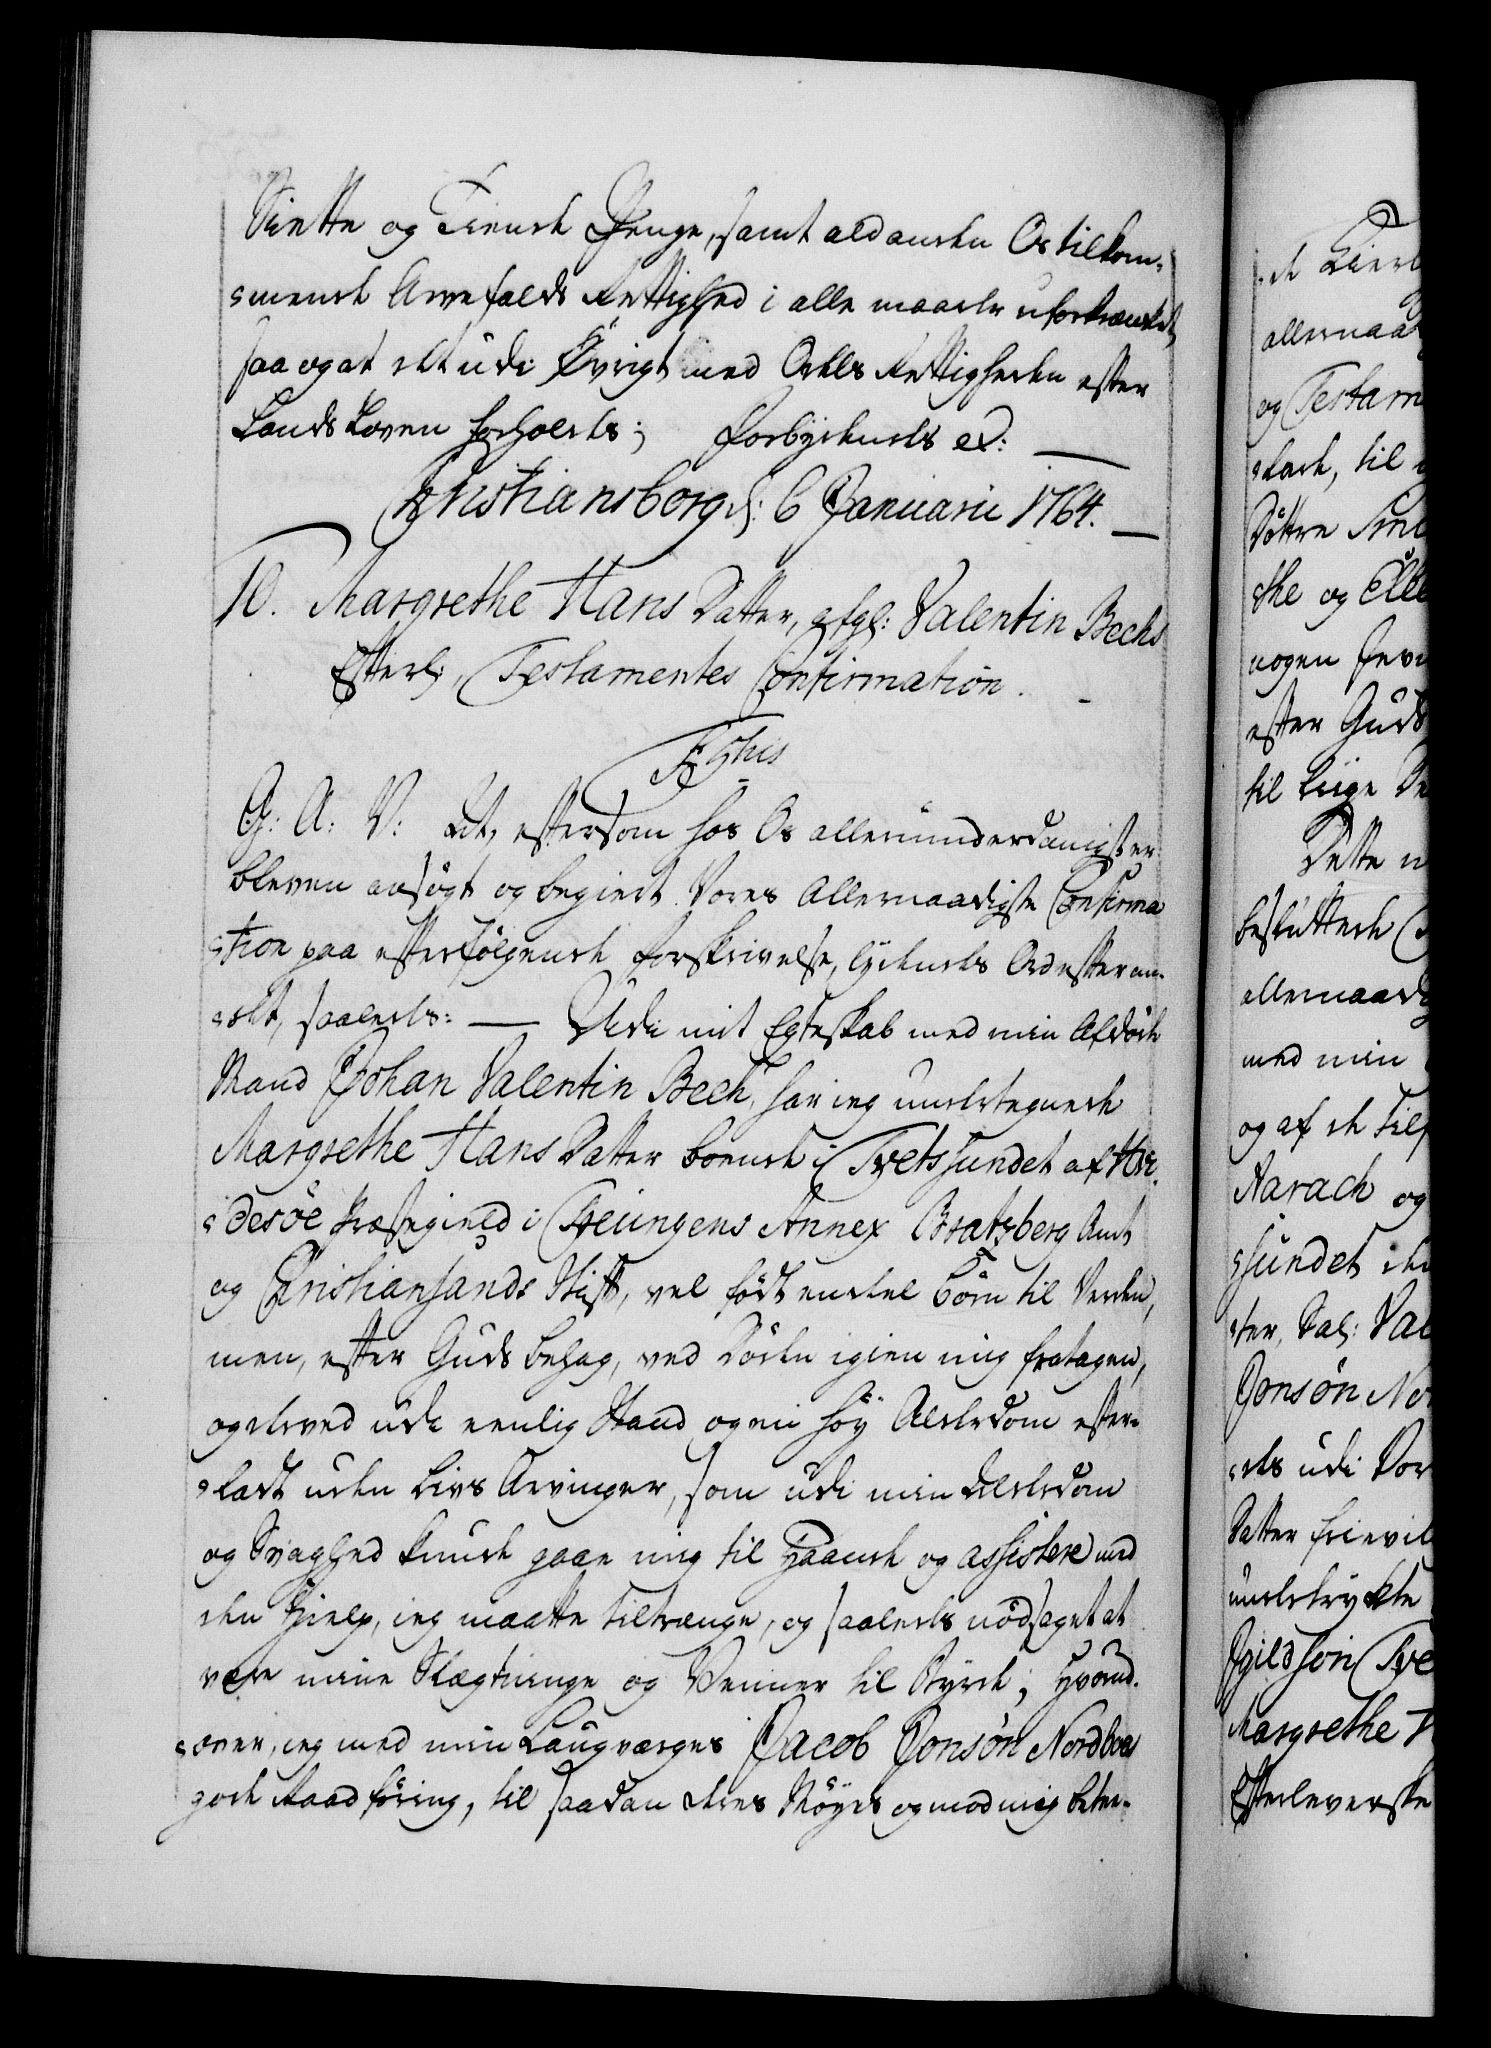 Siette og Tiende Penge, samt ald anden Os tilkom-
mende Arvefalds Rettighed i alle maader uforkrænket,
saa og at det udi Øvrigt med Odels Rettigheden efter
Lands Loven forholdes; Forbydendes &:
Christiansborg d: 6 Januarii 1764.
10. Margrethe Hans Datter, afgl: Valentin Bechs
Efterl:, Testamentes Confirmation.
G: A: V: at, eftersom hos Os allerunderdanigst er
bleven ansögt og begiert Vores Allernaadigste Confirma
tion paa efterfølgende Forskrivelse, lydendes Ord efter an-
det, saaledes: Udi mit Egteskab med min Afdöde
Mand Johan Valentin Bech, har ieg undertegnede
Margrethe Hans Datter boende i Tvetssundet af Hvi-
desöe Præstegield i Treungens Annex Bratsberg Amt
og Christiansands Stift, vel födt endeel Börn til Verden,
men, efter Guds behag, ved Döden igien mig fratagen,
og derved udi eenlig Stand og en höy Alderdom efter-
ladt uden Livs Arvinger, som udi min Alderdom
og Svaghed kunde gaae mig til Haande og assistere med
den Hielp, ieg maatte tiltrænge, og saaledes nödsaget at
være mine Slægtninge og Venner til Byrde; Hvorud-
over, ieg med min Laugværges Jacob Jonsön Nordboes
gode Raadföring, til saadan deres Möyes og mod mig betee-
de
allernaa
og Testam
lade, til
Döttre
the og Elle
nogen
efter Guds
til Liige
Dette
besluttede
allernaad
med min
og af de
Aarach og
sundet
ter, Sal: Val
Jonsön No
des udi
Datter frievil
undertrykte
Margrethe H
Efterleverske